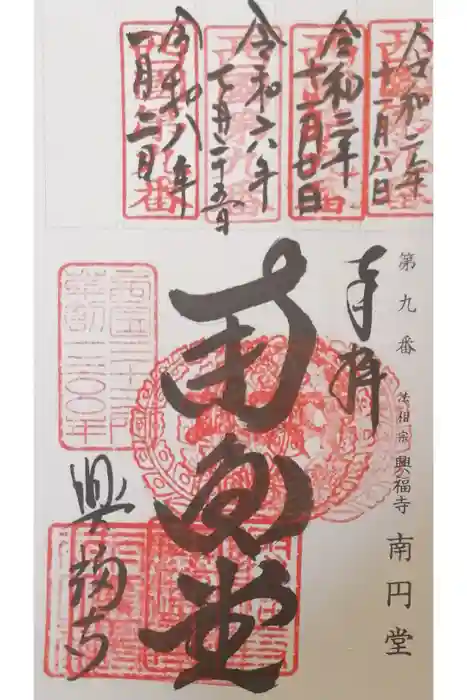 令和二年
十一月八日
令和三年
十一月廿日
令和六年
七月二十五日
令和八年
一月二日
西國第九番
第九番 法相宗 興福寺 南円堂
奉拝
南円堂
興福寺
西国三十三所
草創一三〇〇年